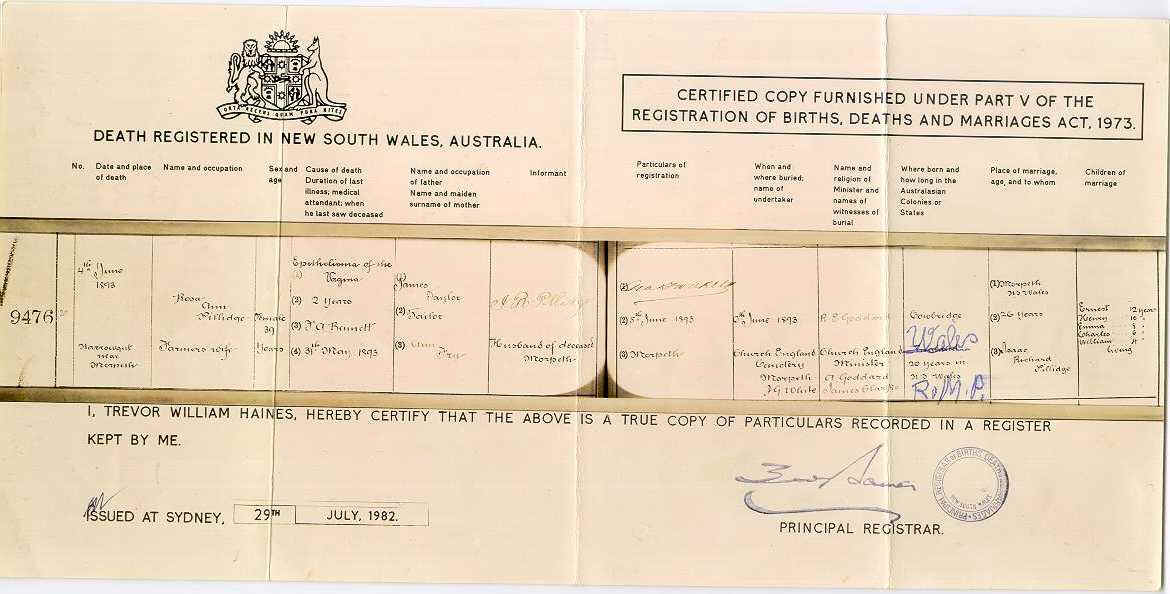 ORTA RECENS QUAM PURA NITES
DEATH REGISTERED IN NEW SOUTH WALES, AUSTRALIA.
CERTIFIED COPY FURNISHED UNDER PART V OF THE
REGISTRATION OF BIRTHS, DEATHS AND MARRIAGES ACT, 1973.
No.
Date and place
of death
Name and occupation
Sex and
age
Cause of death
Duration of last
illness; medical
attendant; when
he last saw deceased
Name and occupation
of father
Name and maiden
surname of mother
Informant
Particulars of
registration
When and
where buried;
name of
undertaker
Name and
religion of
Minister and
names of
witnesses of
burial
Where born and
how long in the
Australasian
Colonies or
States
Place of marriage,
age, and to whom
Children of
marriage
9476
4th June
1893
Narrowgut
near
Morpeth
Rosa
Ann
Pillidge
Farmers wife
Female
39
Years
Epithelioma of the
(1) Vagina
(2) 2 Years
(3)
(4) 31st May 1893
(1)
James
Taylor
(2)
(3) Ann
Fry
Husband of deceased
Morpeth
(1)
(2) 5th June 1893
(3) Morpeth
June 1893
Church England
Cemetery
Morpeth
J G White
Goddard
Church England
Minister
Goddard
James
Cowbridge
Wales
20 years in
N.S. Wales
R.M.P.
(1) Morpeth
N S Wales
(2) 26 Years
(3) Isaac
Richard
Pillidge
Ernest 12 years
Henry 10 "
Emma
Charles
William
living
I, TREVOR WILLIAM HAINES, HEREBY CERTIFY THAT THE ABOVE IS A TRUE COPY OF PARTICULARS RECORDED IN A REGISTER
KEPT BY ME.
ISSUED AT SYDNEY, 29TH JULY, 1982.
PRINCIPAL REGISTRAR.